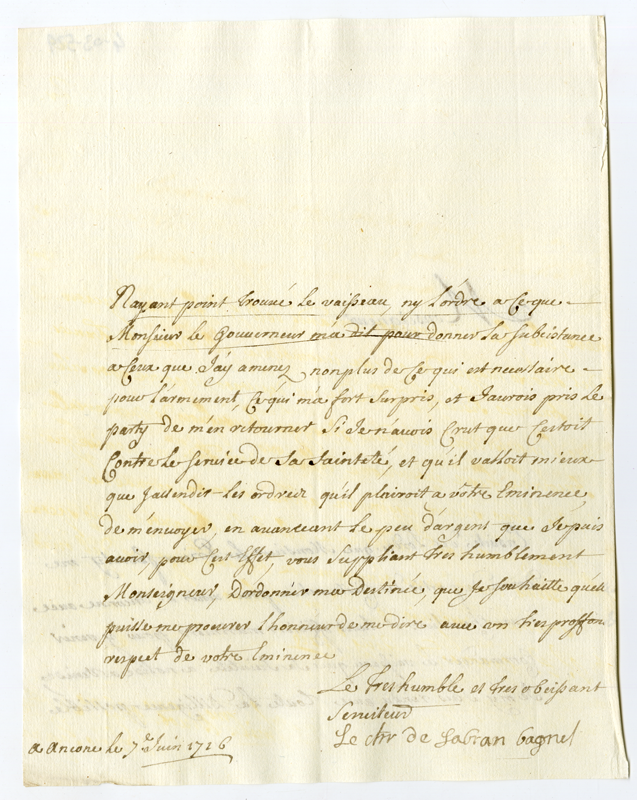 Nayant point trouvé le vaisseau, ny lordre a ce que
Monsieur le Gouverneur m'a dit pour donner la subcistance
a Ceux que J'ay amenez, nonplus de Ce qui est necessaire
pour l'armement, Ce qui m'a fort surpris, et J'aurois pris le
party de m'en retourner Si Je navois Crut que C'estoit
Contre le service de sa Sainteté, et qu'il valloit mieux
que J'attendis les ordres qu'il plairoit a vôtre Eminence
de m'envoyer, en avanceant le peu d'argent que Je puis
avoir pour Cest Effet, vous Suppliant tres humblement
Monseigneur, D'ordonner ma Destinée, que Je souhaitte qu'elle
puisse me procurer l'honneur de me dire avec un tres proffon
respect de votre Eminence
Le tres humble et tres obeissant
Serviteur
Le chr de Sabran bagnol
a Ancone le 7e Juin 1716